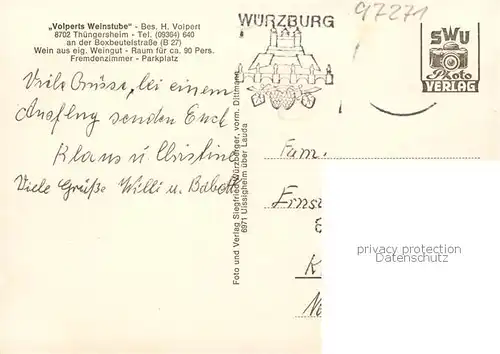 „Volperts Weinstube" - Bes. H. Volpert
8702 Thüngersheim - Tel. (09364) 640
an der Boxbeutelstraße (B 27)
Wein aus eig. Weingut - Raum für ca. 90 Pers.
Fremdenzimmer - Parkplatz
WÜRZBURG
97271
SWU
Photo
VERLAG
Viele Grüsse, bei einem
Ausflug senden Euch
Klaus u. Christine
Viele Grüße Willi u. Babett
Foto und Verlag Siegfried Würzburger, vorm. Dittmann
6971 Uissigheim über Lauda
Fam.
Ernst
K
privacy protection
Datenschutz